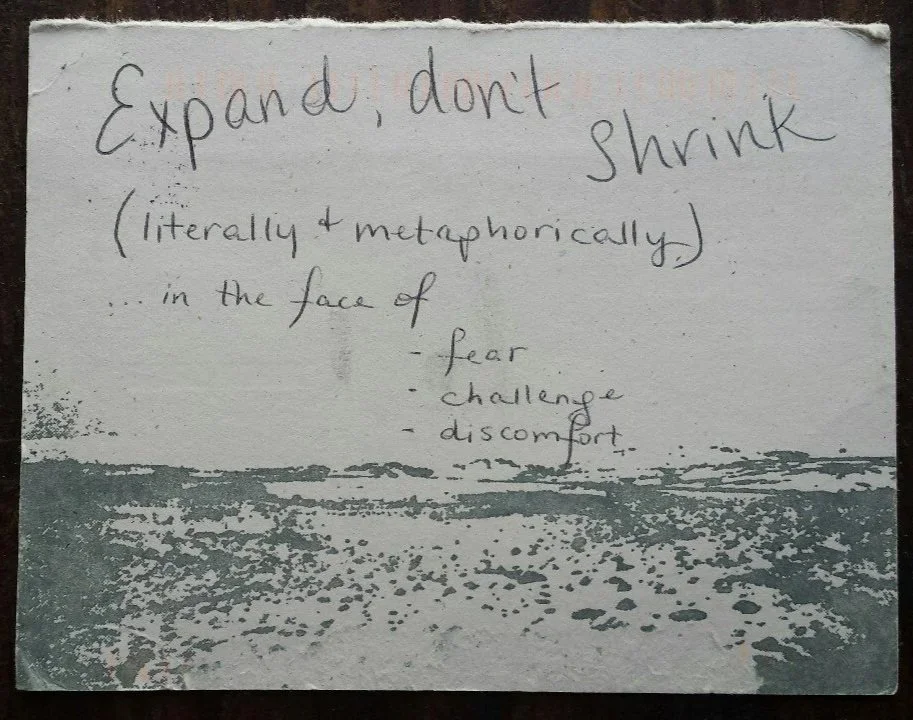 Expand, don't
Shrink
(literally + metaphorically)
... in the face of
- fear
- challenge
- discomfort